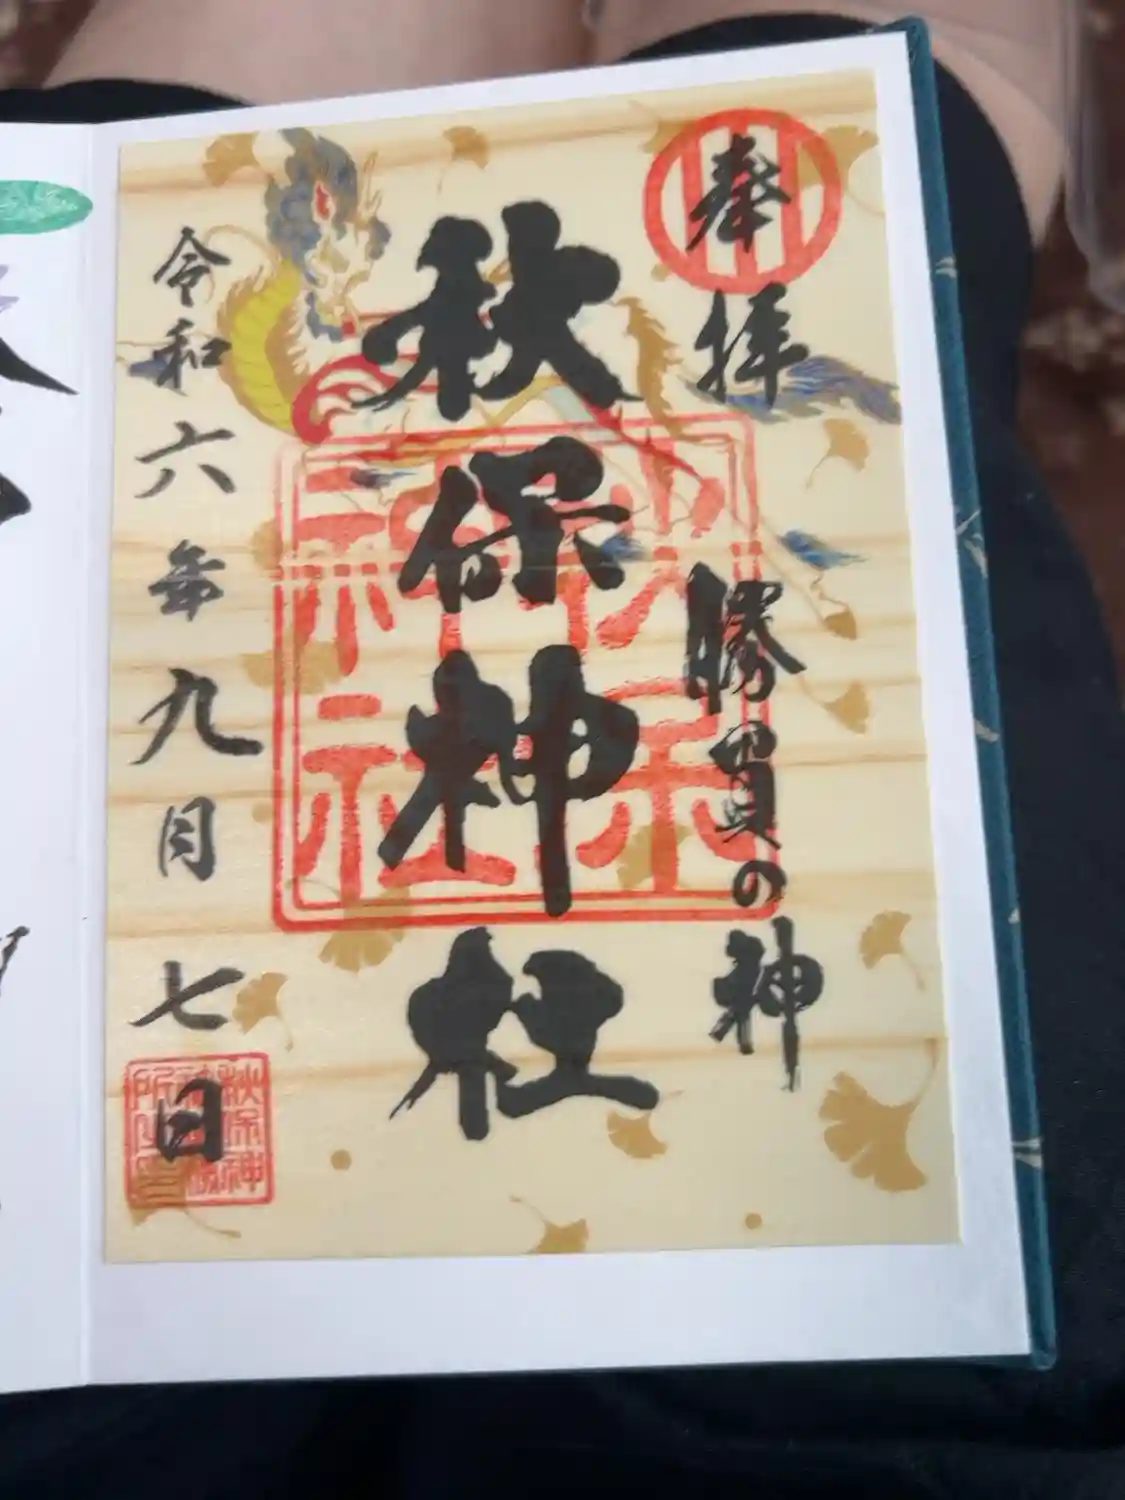 奉拝
勝負の神
秋保神社
令和六年九月七日
秋保
神社
秋保神